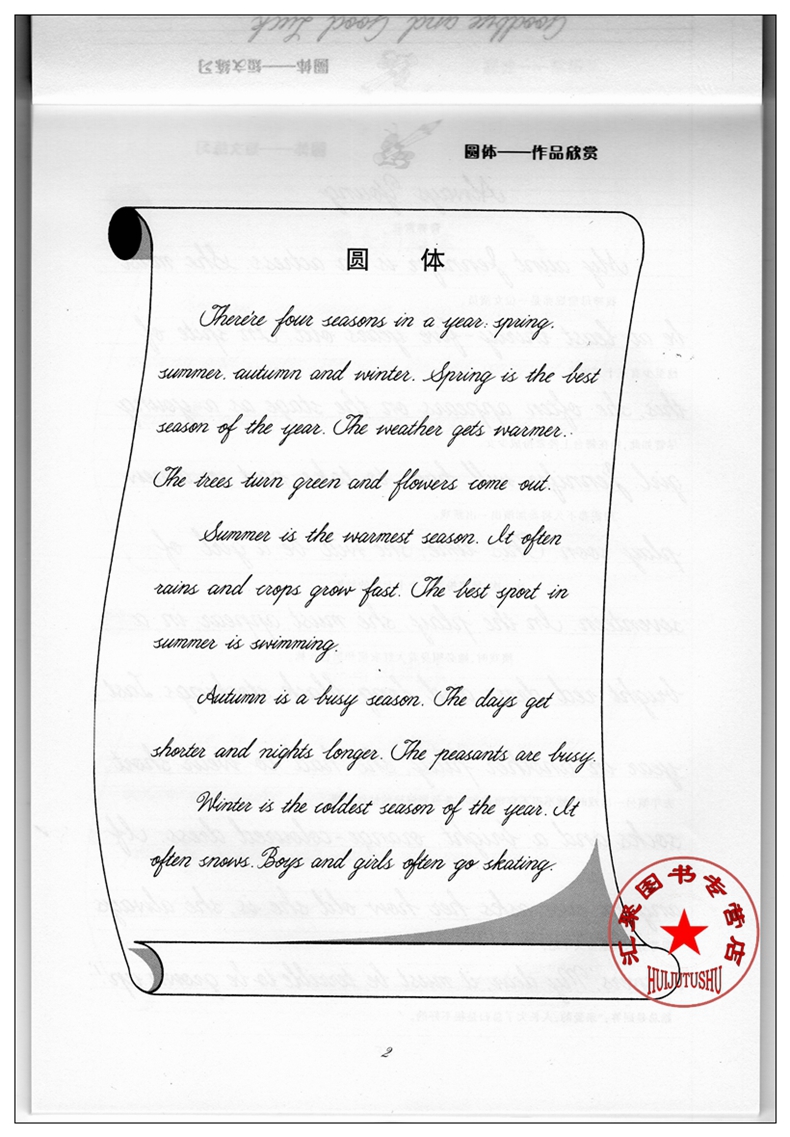 圆体——作品欣赏
圆 体
There're four seasons in a year: spring,
summer, autumn and winter. Spring is the best
season of the year. The weather gets warmer.
The trees turn green and flowers come out.
Summer is the warmest season. It often
rains and crops grow fast. The best sport in
summer is swimming.
Autumn is a busy season. The days get
shorter and nights longer. The peasants are busy.
Winter is the coldest season of the year. It
often snows. Boys and girls often go skating.
汇聚图书专营店
HUIJUTUSHU
2